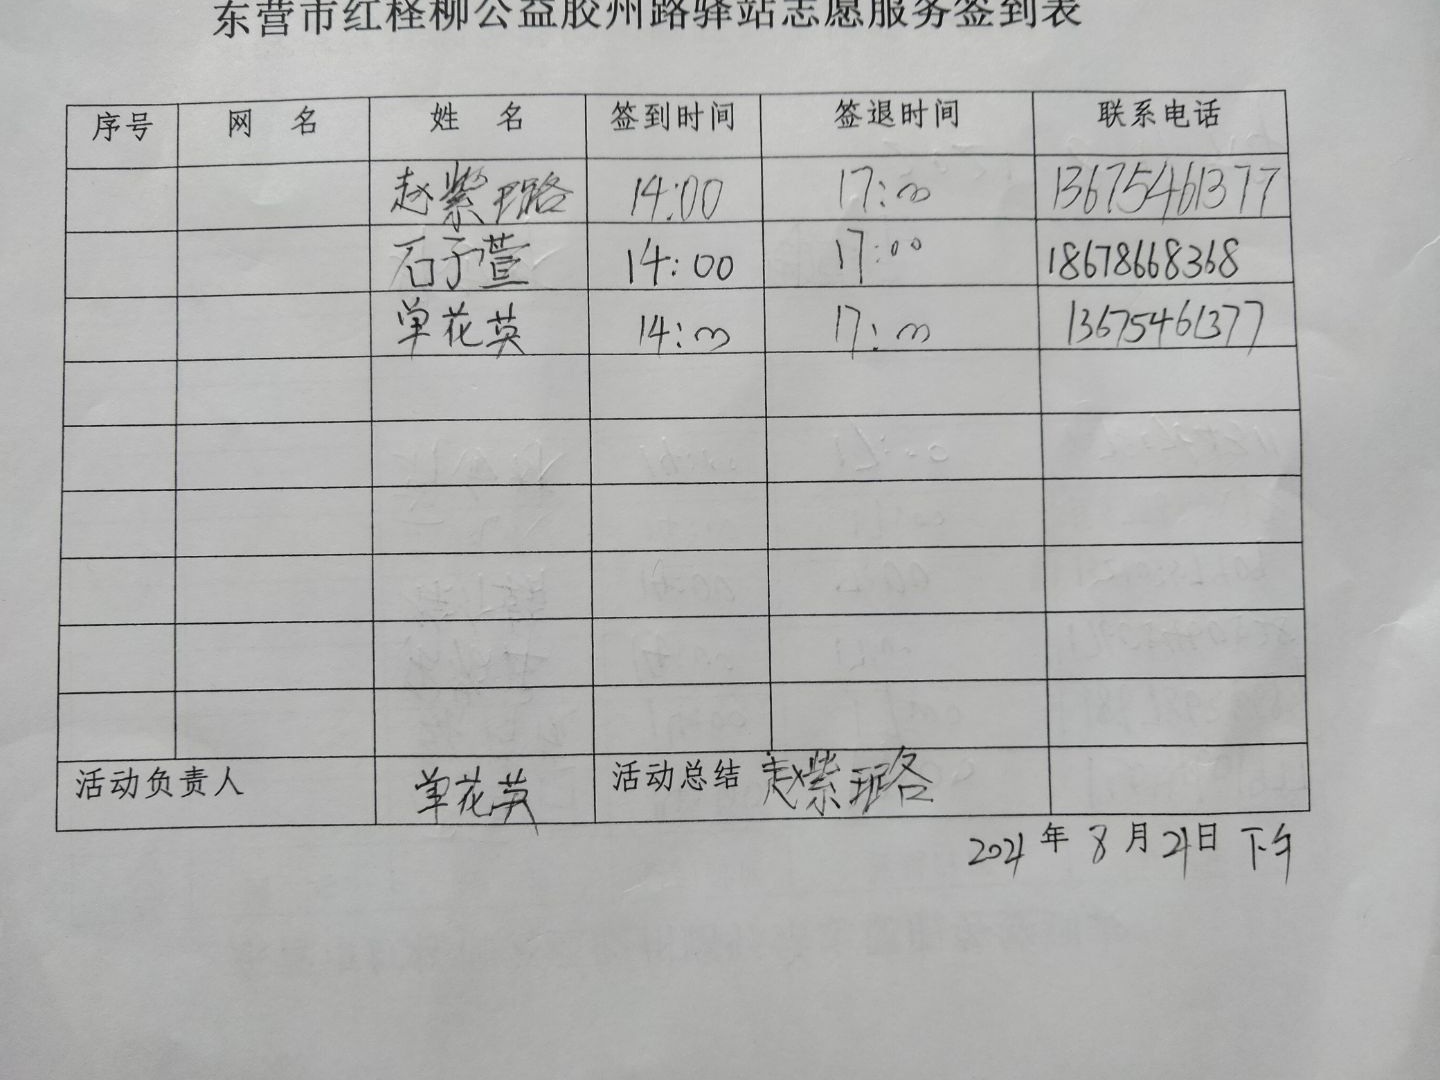 东营市红柽柳公益胶州路驿站志愿服务签到表
序号 网 名 姓 名 签到时间 签退时间 联系电话
赵紫珞 14:00 17:00 13675461377
石子萱 14:00 17:00 18678668368
单花英 14:00 17:00 13675461377
活动负责人 单花英 活动总结 赵紫珞
2021年8月21日 下午